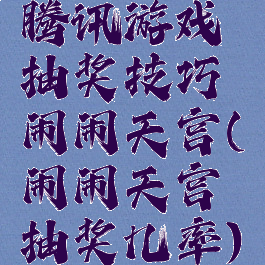 腾讯游戏
抽奖技巧
闹闹天宫(
闹闹天宫
抽奖几率)